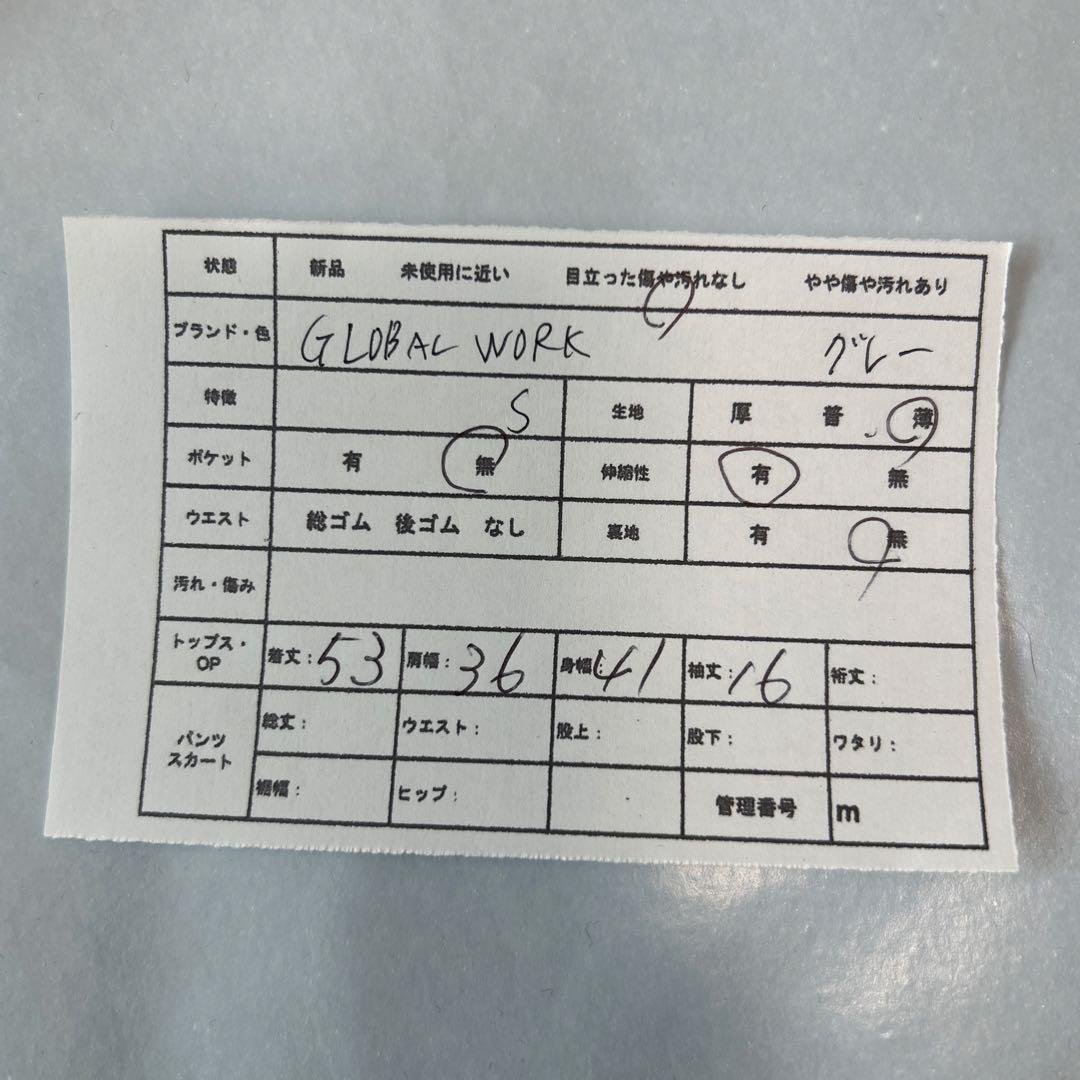 状態 新品 未使用に近い 目立った傷や汚れなし やや傷や汚れあり
ブランド・色 GLOBAL WORK グレー
特徴 S 生地 厚 普 薄
ポケット 有 無 伸縮性 有 無
ウエスト 総ゴム 後ゴム なし 裏地 有 無
汚れ・傷み
トップス・OP 着丈：53 肩幅：36 身幅：41 袖丈：16 裄丈：
パンツ スカート 総丈： ウエスト： 股上： 股下： ワタリ：
裾幅： ヒップ： 管理番号 m